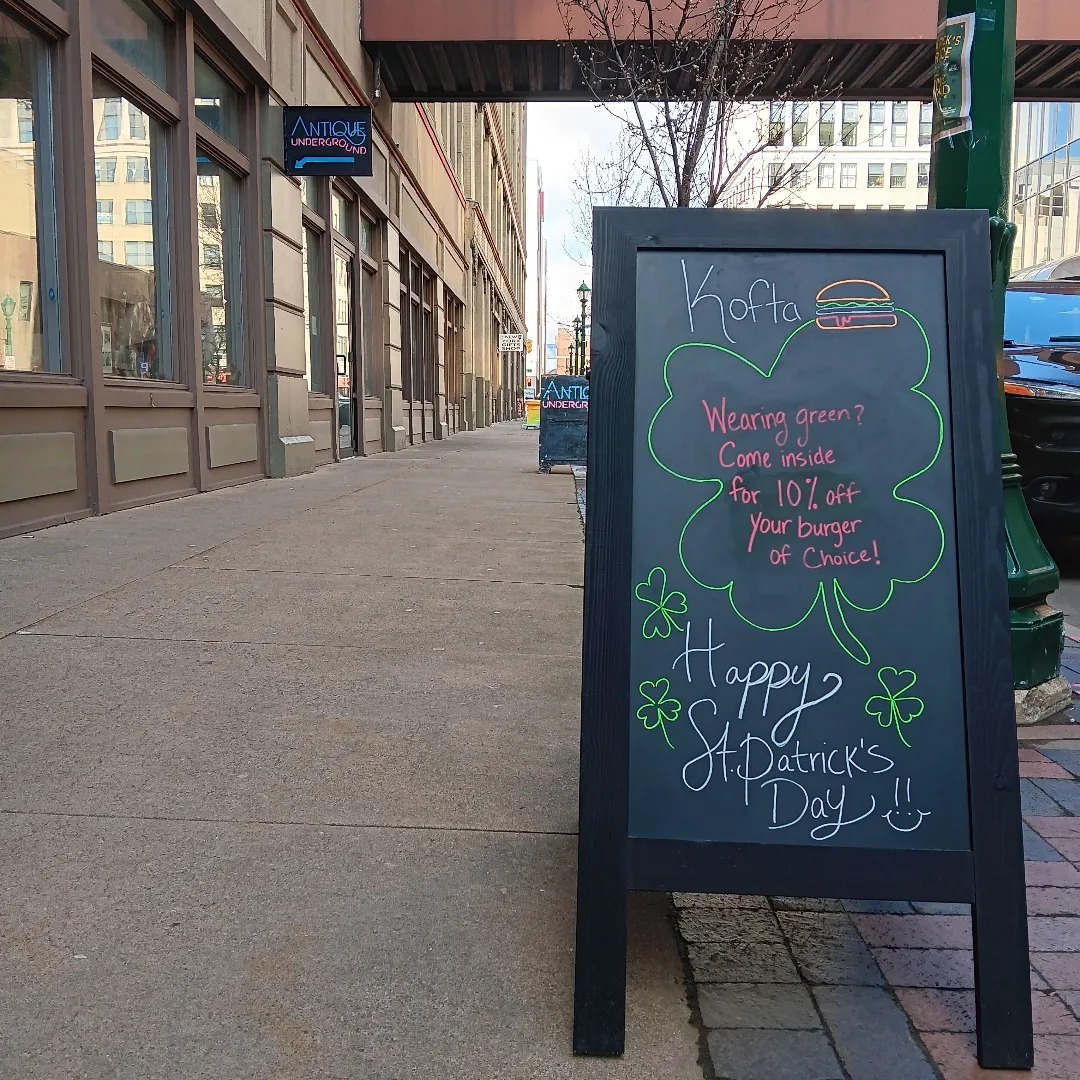 ANTIQUE
UNDERGROUND
ANTIQUE
UNDERGR
Kofta
Wearing green?
Come inside
for 10% off
Your burger
of Choice!
Happy
St. Patrick's
Day !!